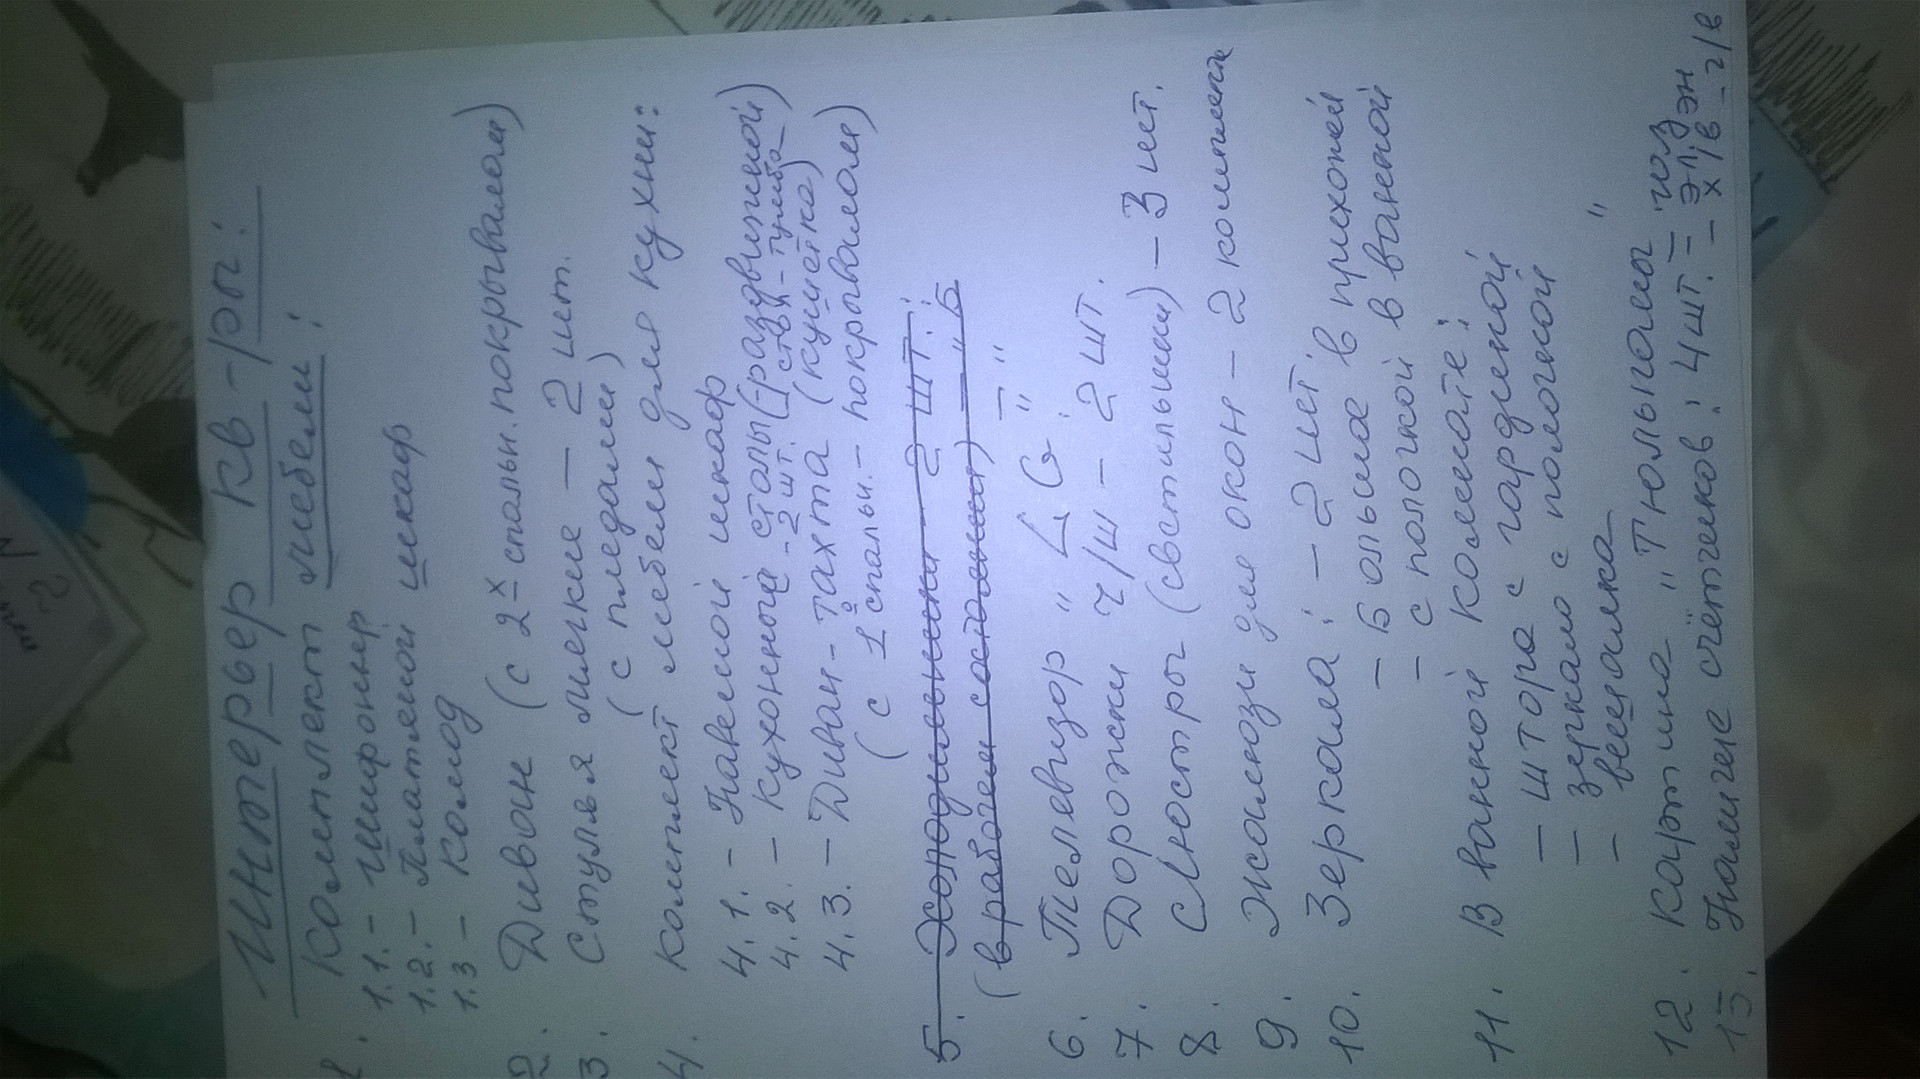 Интерьер кв-ры:
1. Комплект мебели:
1.1. - Шифоньер
1.2. - Платяной шкаф
1.3 - Комод
2. Диван (с 2х спальн. покрывалом)
3. Стулья мягкие - 2 шт.
(с пледами)
4. Комплект мебели для кухни:
4.1. - Навесной шкаф
4.2. - Кухонный стол (-раздвижной)
- 2 шт. стол - тумба
4.3. - Диван - тахта (кушетка)
(с 1о спальн. - покрывалом)
5. Холодильники - 2 шт.:
(в рабочем состоянии) - " - Б
6. Телевизор "LG" - "
7. Дорожки ч/ш - 2 шт.
8. Люстры (светильники) - 3 шт.
9. Жалюзи для окон - 2 комплекта
10. Зеркала: - 2 шт
- большое в прихожей
- с полочкой в ванной
11. В ванной комнате:
- штора с гардиной
- зеркало с полочкой
- вешалка
12. Картина "Тюльпаны"
13. Наличие счётчиков: 4 шт. - газ
- эл/эн
- х/в - г/в